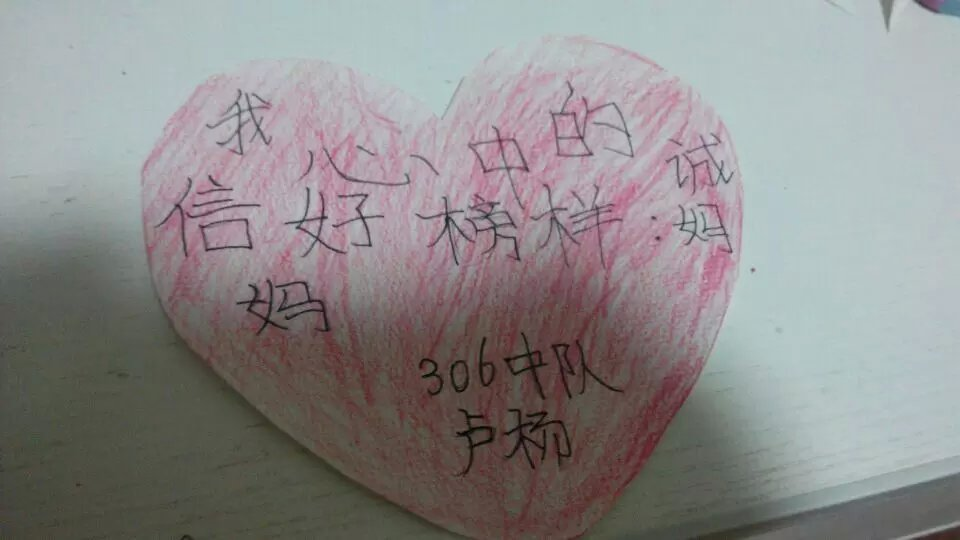 我心中的诚
信好榜样:妈
妈
306中队
卢杨